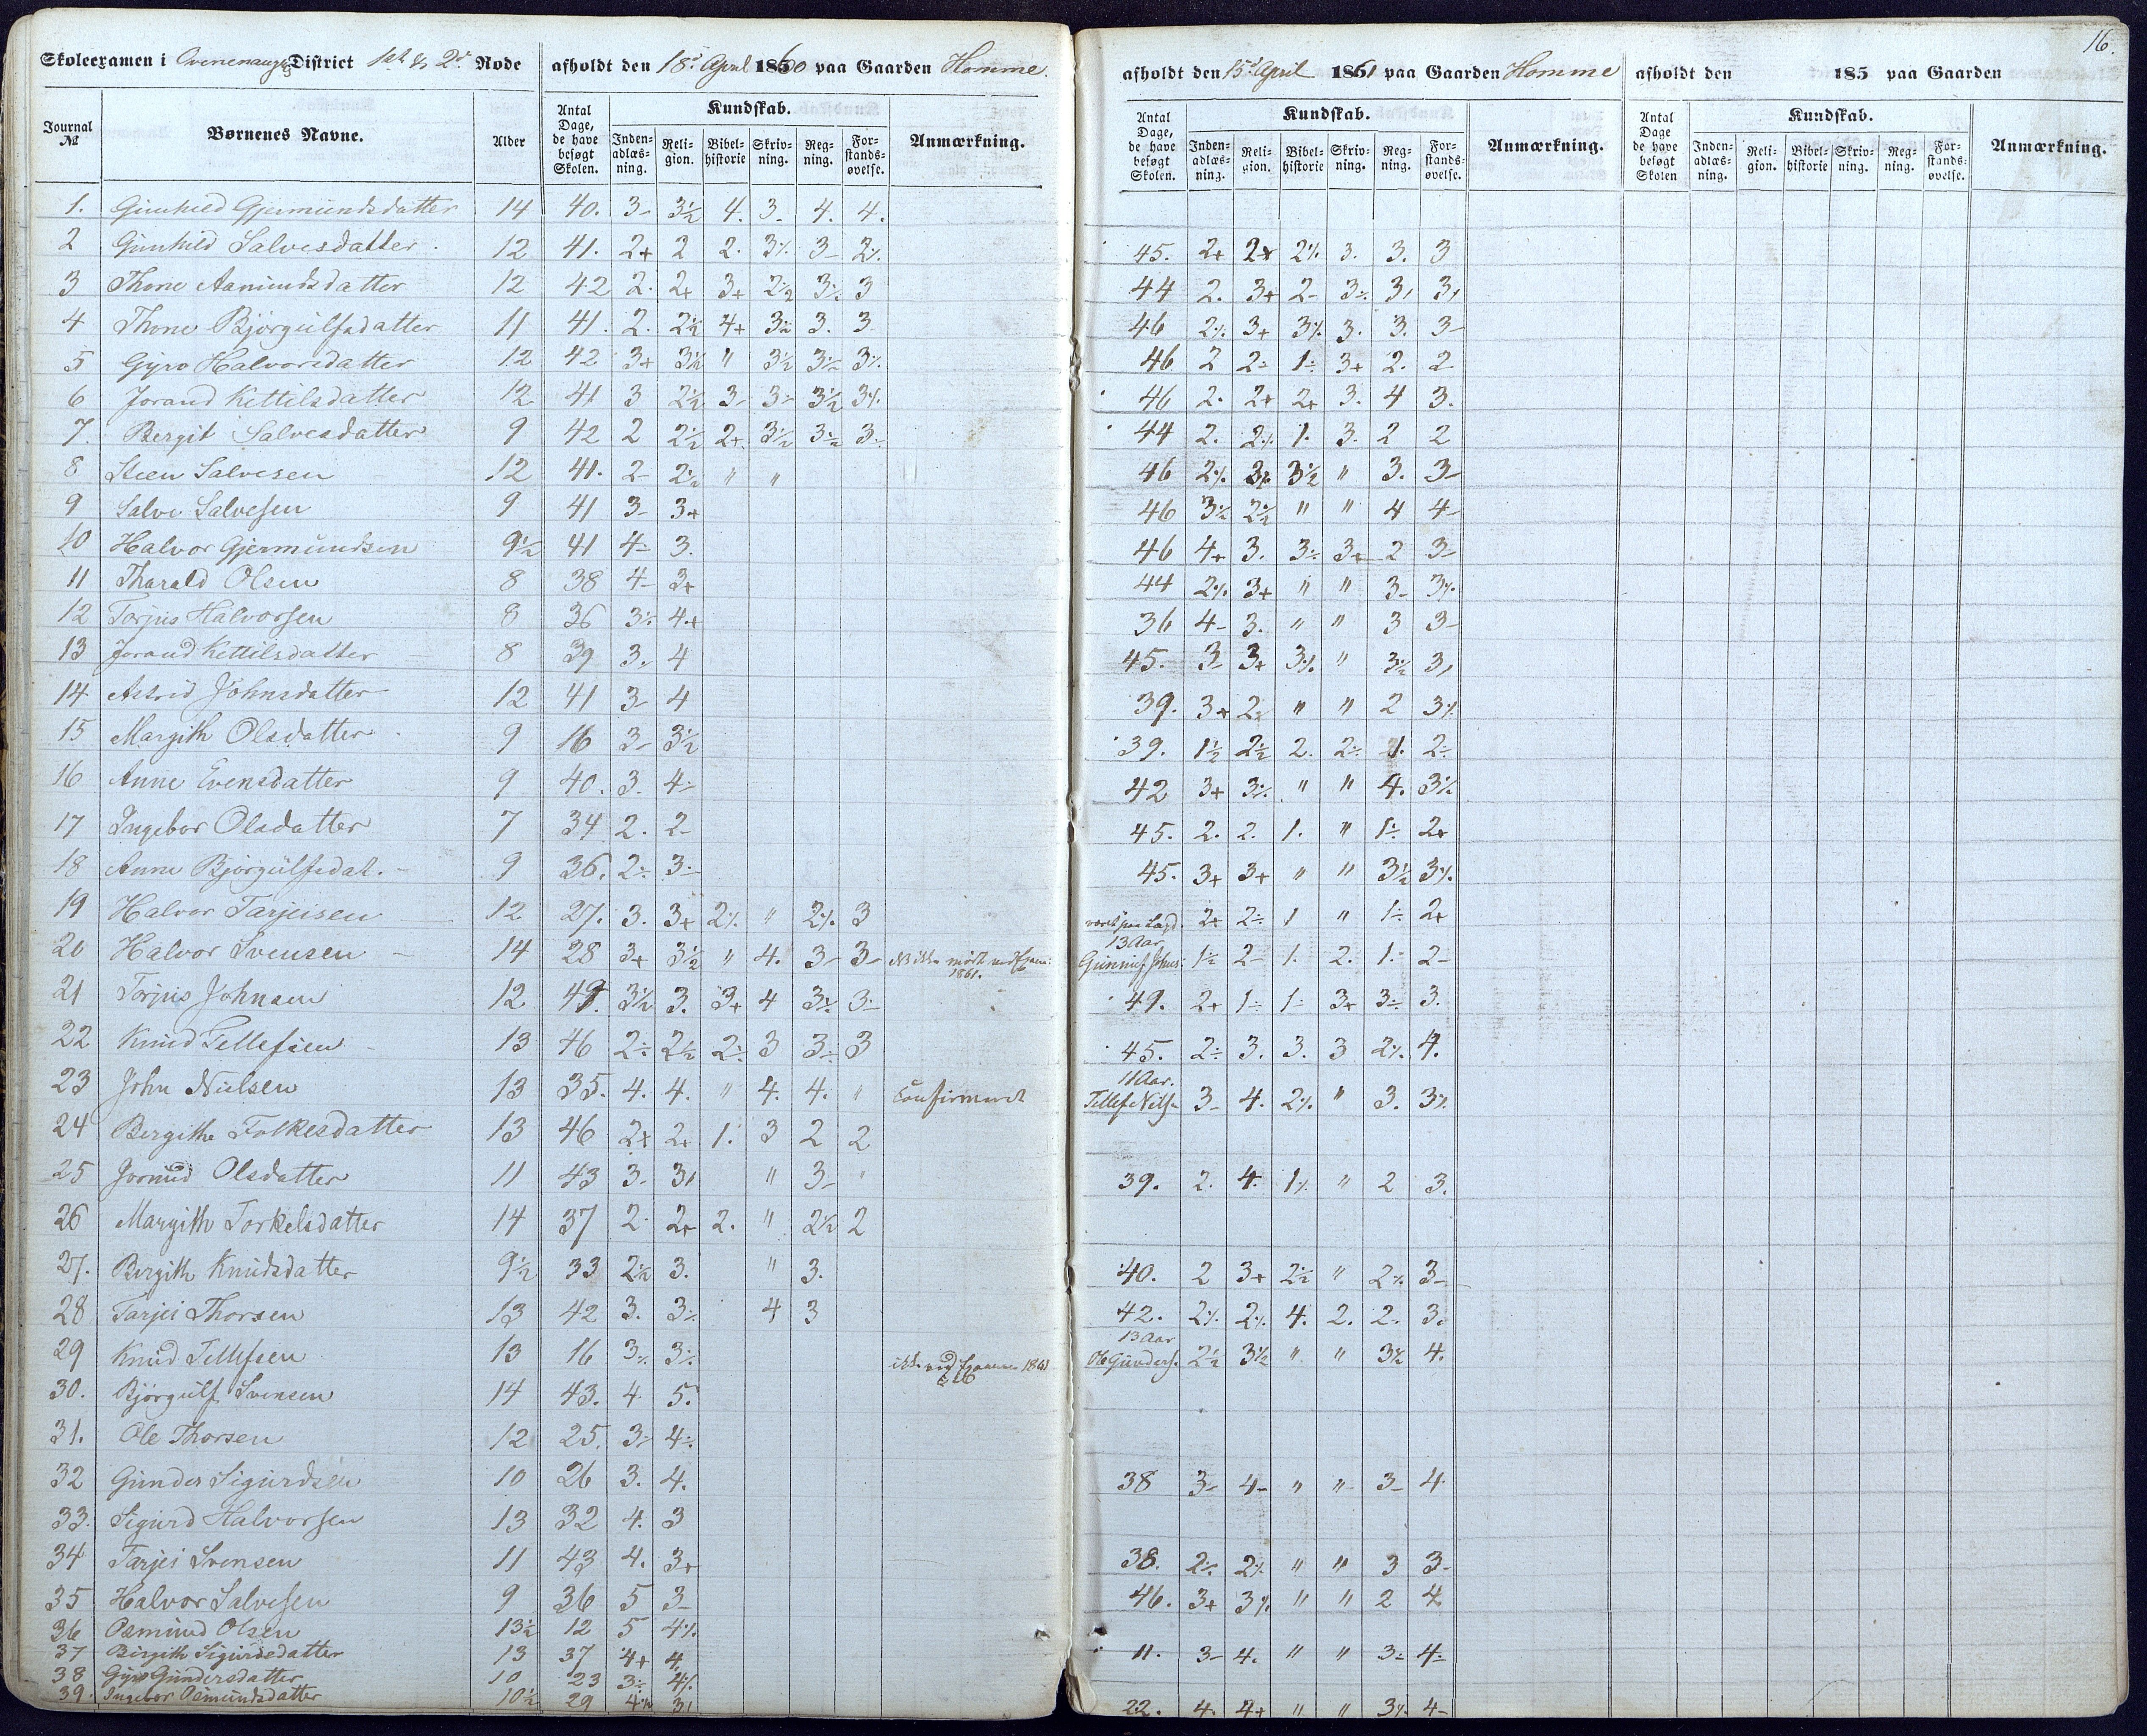 16.
Skoleexamen i District 1ste & 2d Rode afholdt den 18d April 1860 paa Gaarden Homme. afholdt den 15d April 1861 paa Gaarden Homme afholdt den 185 paa Gaarden
Journal № Børnenes Navne. Alder Antal Dage, de have besøgt Skolen. Kundskab. Inden-adlæs-ning. Reli-gion. Bibel-historie Skriv-ning. Reg-ning. For-stands-øvelse. Anmærkning. Antal Dage, de have besøgt Skolen. Kundskab. Inden-adlæs-ning. Reli-gion. Bibel-historie Skriv-ning. Reg-ning. For-stands-øvelse. Anmærkning. Antal Dage de have besøgt Skolen Kundskab. Inden-adlæs-ning. Reli-gion. Bibel-historie Skriv-ning. Reg-ning. For-stands-øvelse. Anmærkning.
1. Gunhild Gjermundsdatter 14 40. 3- 3½ 4. 3- 4. 4.
2 Gunhild Salvesdatter 12 41. 2+ 2 2. 3⁒ 3- 2⁒ 45. 2+ 2+ 2⁒ 3. 3. 3
3 Thone Aanundsdatter 12 42 2. 2+ 3+ 2½ 3⁒ 3 44 2. 3+ 2- 3⁒ 3, 3,
4 Thone Bjørgulfsdatter 11 41. 2. 2½ 4+ 3½ 3. 3 46 2⁒ 3+ 3⁒ 3. 3. 3-
5 Gyro Halvorsdatter 12 42 3+ 3½ " 3½ 3½ 3⁒ 46 2 2÷ 1÷ 3+ 2. 2
6 Jorand Kettilsdatter 12 41 3 2½ 3- 3÷ 3½ 3⁒ 46 2. 2+ 2+ 3. 4 3.
7. Bergit Salvesdatter 9 42 2 2½ 2+ 3½ 3½ 3÷ 44 2. 2⁒ 1. 3. 2 2
8 Steen Salvesen 12 41. 2- 2½ " " 46 2⁒ 3⁒ 3½ " 3. 3-
9 Salve Salvesen 9 41 3- 3+ 46 3½ 2½ " " 4 4-
10 Halvor Gjermundsen 9½ 41 4- 3. 46 4+ 3. 3÷ 3+ 2 3-
11 Tharald Olsen 8 38 4- 3+ 44 2⁒ 3+ " " 3- 3⁒
12 Torjus Halvorsen 8 36 3⁒ 4+ 36 4- 3. " " 3 3-
13 Jorand Kettilsdatter 8 39 3- 4 45. 3- 3+ 3⁒ " 3½ 3,
14 Astrid Johnsdatter 12 41 3- 4 39. 3+ 2+ " " 2 3⁒
15 Margith Olsdatter 9 16 3- 3½ 39. 1½ 2½ 2. 2÷ 1. 2÷
16 Anne Evensdatter 9 40. 3. 4- 42 3+ 3⁒ " " 4. 3½
17 Ingebor Olsdatter 7 34 2. 2- 45. 2. 2. 1. " 1÷ 2+
18 Anne Bjørgulfsdat. 9 36. 2÷ 3÷ 45. 3+ 3+ " " 3½ 3⁒
19 Halvor Tarjeisen 12 27. 3. 3+ 2⁒ " 2⁒ 3 2+ 2÷ 1 " 1÷ 2+
20 Halvor Svensen 14 28 3+ 3½ " 4. 3- 3- ikke mødt ved Exam: 1861. 13 Aar Gunnuf Johns: 1½ 2- 1. 2. 1. 2-
21 Torjus Johnsen 12 49. 3½ 3. 3+ 4 3⁒ 3- 49. 2+ 1÷ 1÷ 3+ 3÷ 3.
22 Knud Tellefsen 13 46 2÷ 2½ 2÷ 3 3÷ 3 45. 2÷ 3. 3. 3 2⁒ 4.
23 John Nielsen 13 35. 4. 4. " 4. 4. " Confirmeret 11 Aar. Tellef Nils. 3- 4. 2⁒ " 3. 3⁒
24 Bergithe Folkesdatter 13 46 2+ 2+ 1. 3 2 2
25 Jorund Olsdatter 11 43 3- 3, " 3- " 39. 2. 4. 1⁒ " 2 3.
26 Margith Torkelsdatter 14 37 2. 2+ 2. " 2½ 2
27. Bergith Knudsdatter 9½ 33 2½ 3. " 3. 40. 2 3+ 2½ " 2⁒ 3-
28 Tarjei Thorsen 13 42 3. 3⁒ 4 3 42. 2⁒ 2⁒ 4. 2. 2. 3.
29 Knud Tellefsen 13 16 3⁒ 3⁒ ikke ved Examen 1861 13 Aar Ole Gunders. 2½ 3½ " " 3½ 4.
30. Bjørgulf Svensen 14 43. 4 5.
31. Ole Thorsen 12 25. 3÷ 4÷
32 Gunder Sigurdsen 10 26 3. 4. 38 3- 4- " " 3- 4.
33. Sigurd Halvorsen 13 32 4. 3
34 Tarjei Svensen 11 43 4. 3+ 38. 2÷ 2⁒ " " 3 3-
35 Halvor Salvesen 9 36 5 3- 46. 3+ 3⁒ " " 2 4
36 Osmund Olsen 13½ 12 5 4⁒
37 Birgith Sigurdsdatter 13 37 4+ 4 11. 3- 4. " " 3÷ 4÷
38 Gyro Gundersdatter 10 23 3÷ 4⁒
39. Ingebor Osmundsdatter 10½ 29 4½ 3, 22. 4. 4+ " " 3⁒ 4-